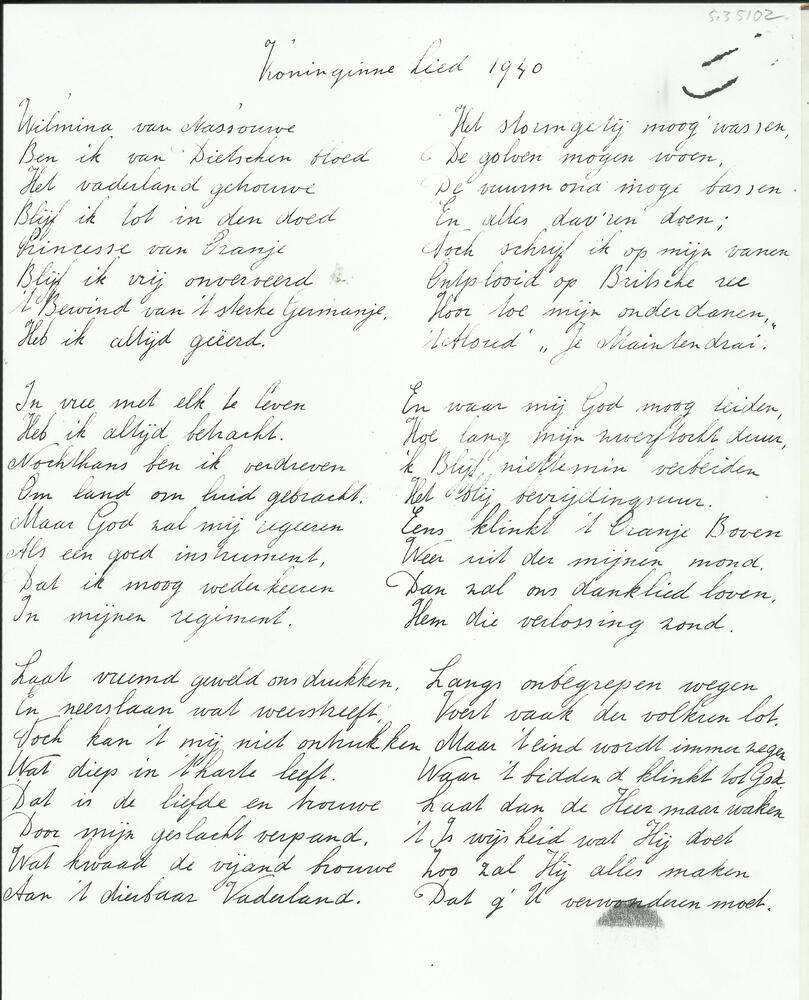 5.35102
Koninginne Lied 1940
Wilmina van Nassouwe
Ben ik van Dietschen bloed
Het vaderland getrouwe
Blijf ik tot in den doed
Princesse van Oranje
Blijf ik vrij onverveerd
't Bewind van 't sterke Germanje,
Heb ik altijd geëerd.
In vree met elk te leven
Heb ik altijd betracht.
Nochthans ben ik verdreven
Om land om luid gebracht.
Maar God zal mij regeeren
Als een goed instrument,
Dat ik moog wederkeeren
In mijnen regiment.
Laat vreemd geweld ons drukken,
En neerslaan wat weerstreeft,
Toch kan 't mij niet ontrukken
Wat diep in 't harte leeft.
Dat is de liefde en trouwe
Door mijn geslacht verpand,
Wat kwaad de vijand brouwe
Aan 't dierbaar Vaderland.
Het stormgetij moog' wassen,
De golven mogen woen,
De vuurmond moge bassen
En alles dav'ren doen;
Toch schrijf ik op mijn vanen
Ontplooid op Britsche ree
Hoor toe mijn onderdanen,
't Aloud' „Je Maintendrai."
En waar mij God moog leiden,
Hoe lang mijn zwerftocht duur,
'k Blijf niettemin verbeiden
Het blij bevrijdingsuur.
Eens klinkt 't Oranje Boven
Weer uit der mijnen mond.
Dan zal ons danklied loven,
Hem die verlossing zond.
Langs onbegrepen wegen
Voert vaak der volkren lot.
Maar 't eind wordt immer zegen
Waar 't biddend klinkt tot God
Laat dan de Heer maar waken
't Is wijsheid wat Hij doet
Zoo zal Hij alles maken
Dat g' U verwonderen moet.